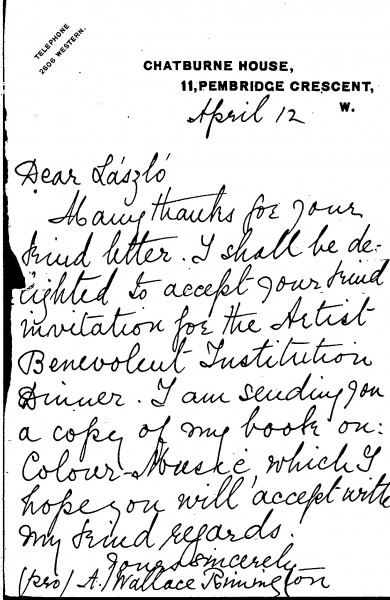 TELEPHONE
2606 WESTERN.
CHATBURNE HOUSE,
11, PEMBRIDGE CRESCENT,
W.
April 12
Dear László
Many thanks for your
kind letter. I shall be de-
lighted to accept your kind
invitation for the Artist
Benevolent Institution
Dinner. I am sending you
a copy of my book on:
Colour-Music which I
hope you will accept with
my kind regards.
Yours sincerely
(pro) A. Wallace Rimington